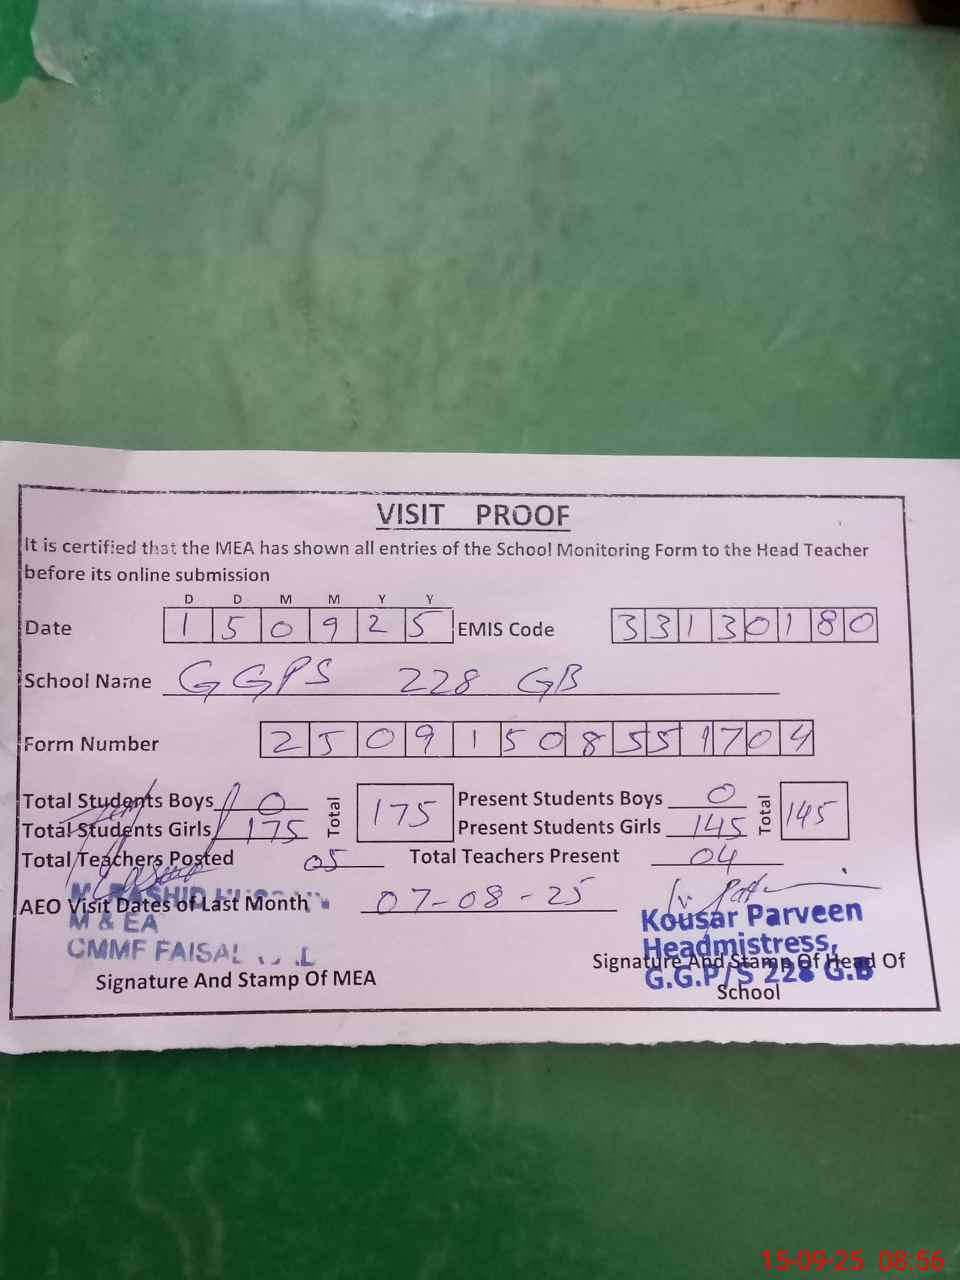 VISIT PROOF
It is certified that the MEA has shown all entries of the School Monitoring Form to the Head Teacher
before its online submission
D D M M Y Y
Date 1 5 0 9 2 5 EMIS Code 3 3 1 3 0 1 8 0
School Name GGPS 228 GB
Form Number 2 5 0 9 1 5 0 8 5 5 1 7 0 4
Total Students Boys 0 Total 175 Present Students Boys 0 Total 145
Total Students Girls 175 Present Students Girls 145
Total Teachers Posted 05 Total Teachers Present 04
AEO Visit Dates of Last Month 07-08-25
RASHID
M & EA
CMMF
Kousar Parveen
Headmistress,
G.G.P/S 228 G.B
Signature And Stamp Of MEA
Signature And Stamp Of Head Of
School
15-09-25 08:56